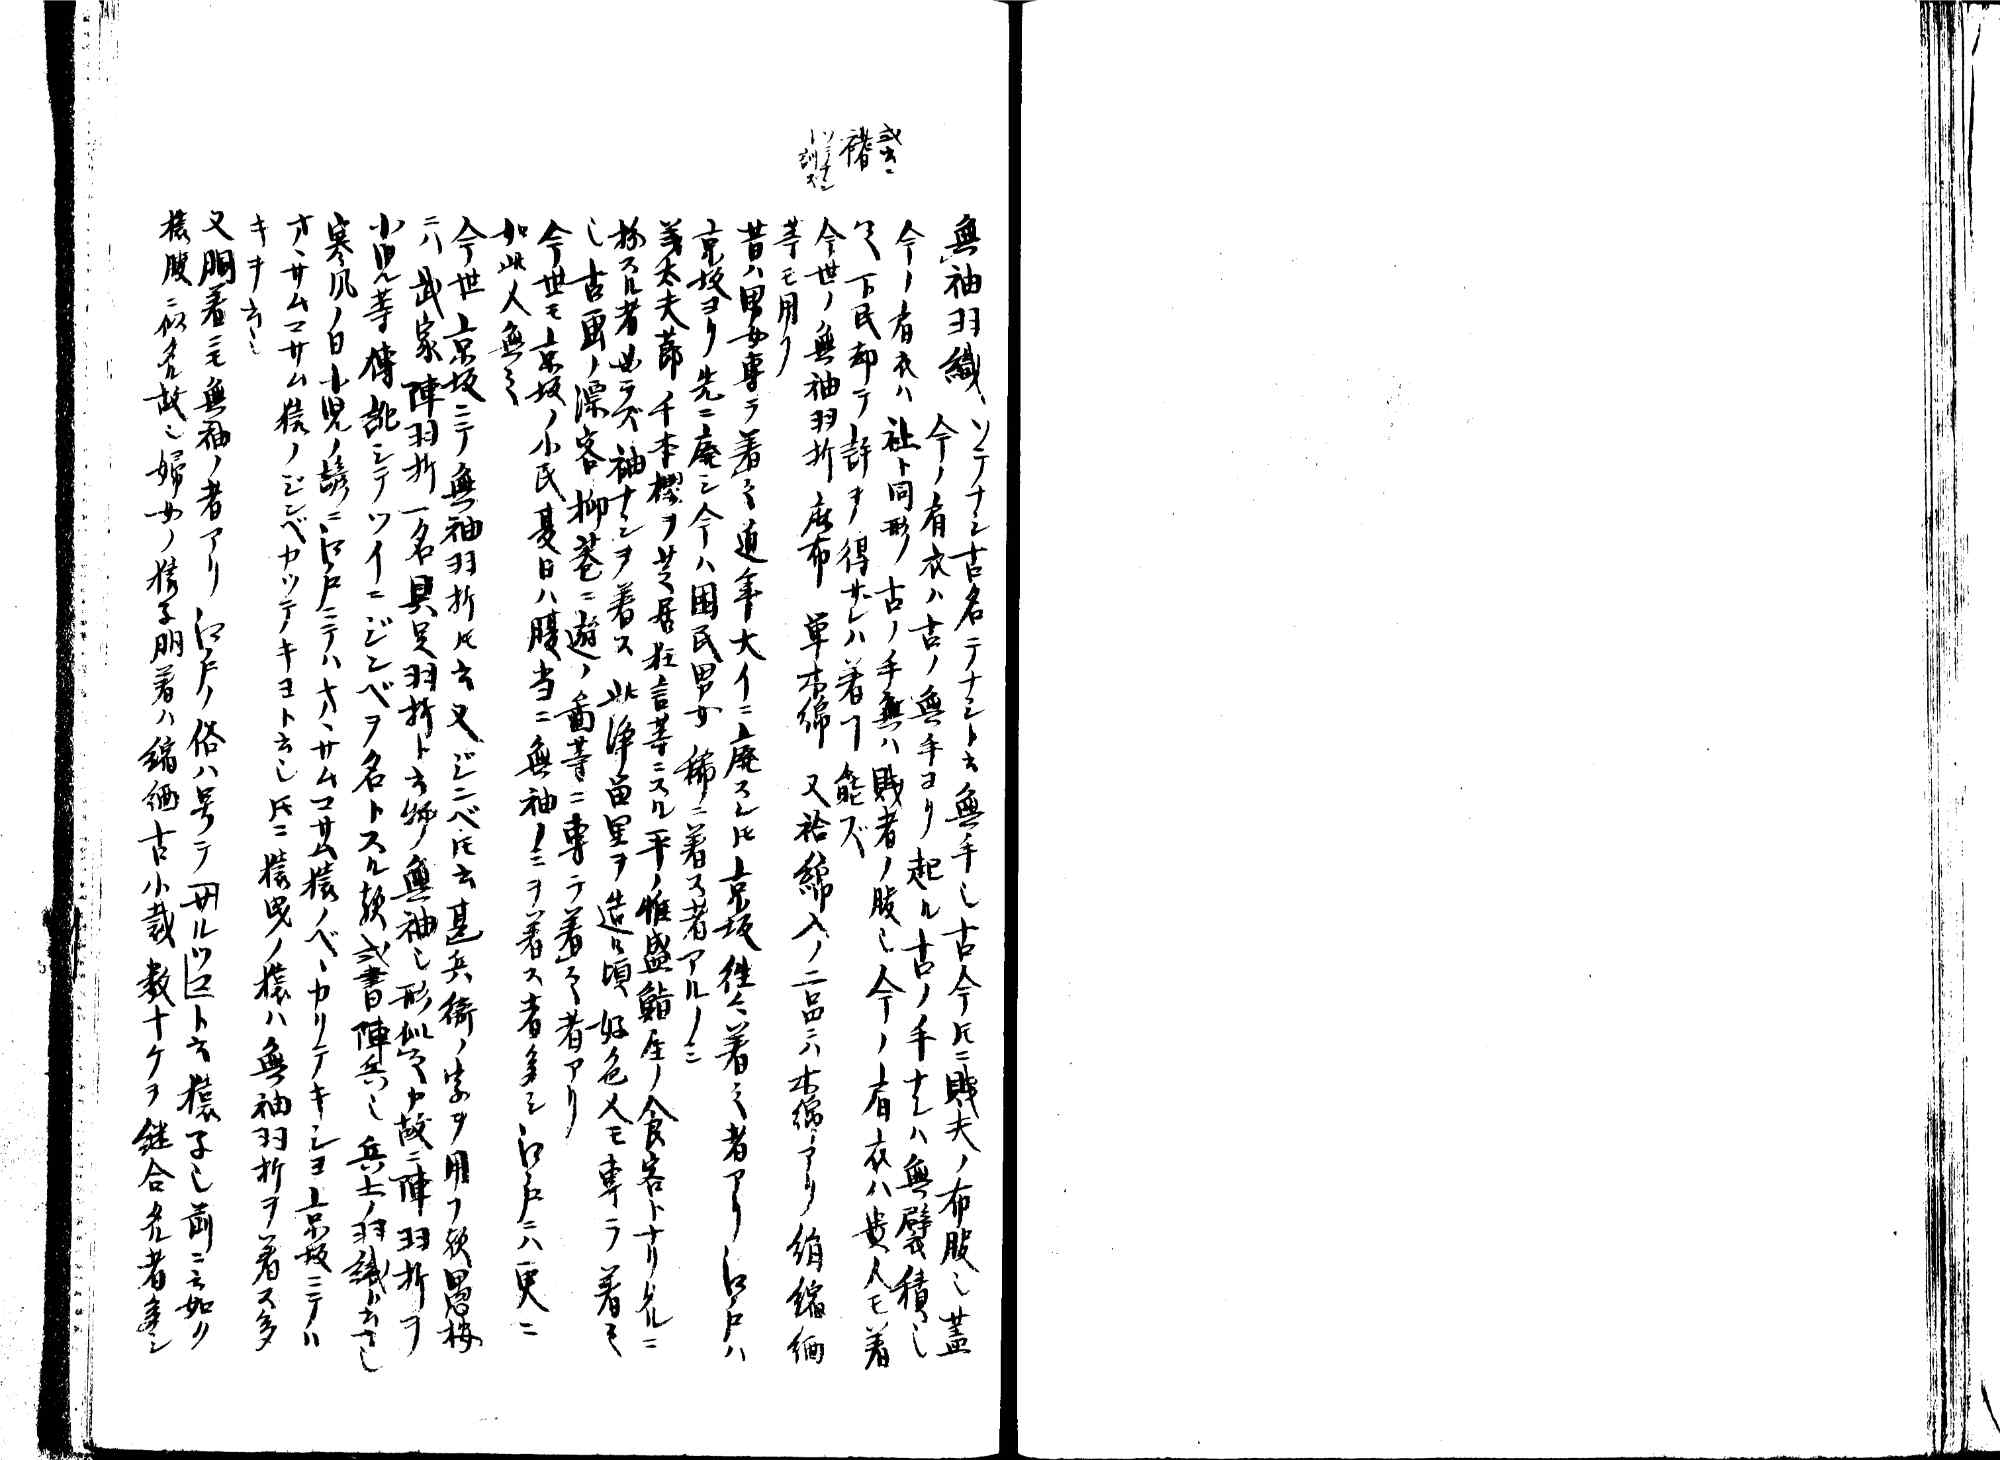 或書ニ
褚
ソデナシ
ト訓ズ
無袖羽織 ソデナシ古名テナシト云無手也古今トモニ賎夫ノ布服也蓋
今ノ有衣ハ古ノ無手ヨリ起ル古ノ手ナシハ無襞積也
今ノ有衣ハ祉ト同形ノ古ノ手無ハ賎者ノ服也今ノ有衣ハ貴人モ着
シ下民却テ許ヲ得ザレハ着コト能ズ
今世ノ無袖羽折麻布単木綿又袷綿入ノ二品ニハ木綿アリ絹縮緬
等モ用フ
昔ハ男女専ラ着ス近年大イニ廃スレトモ京坂往々着ス者アリ江戸ハ
京坂ヨリ先ニ廃シ今ハ困民男女稀ニ着ス者アルノミ
義太夫節千本櫻ヲ芝居狂言等ニスル平ノ惟盛鮨屋ノ食客トナリタルニ
扮スル者必ラズ袖ナシヲ着ス此浄留里ヲ造ル頃好色人モ専ラ着セ
シ古画ノ漂客柳巷ニ遊ノ画等ニ専ラ着ス者アリ
今世モ京坂ノ小民夏日ハ腹当ニ無袖ノミヲ着ス者多シ江戸ニハ更ニ
如此人無之
今世京坂ニテ無袖羽折トモ云又ジンベトモ云甚兵衛ノ字ヲ用フ歟愚按
ニハ武家陣羽折一名具足羽折ト云物無袖也形似タル故ニ陣羽折ヲ
小児等傳訛シテツイニジンベヲ名トスル歟或書陣兵也兵士ノ羽織ト云さし
寒風ノ日小児ノ謡ニ江戸ニテハオヽサムコサム猿ノベヽカリテキシヨ京坂ニテハ
オヽサムコサム猿ノジンベカツテキヨト云シトモニ猿曳ノ猿ハ無袖羽折ヲ着ス多
キヲ云シ
又胴着ニモ無袖ノ者アリ江戸ノ俗ハ号テ丹ルツコト云猿子也前ニ云如ク
猿腹ニ似タル故也婦女ノ猿子胴着ハ縮緬古小裁数十ケヲ継合タル者多シ